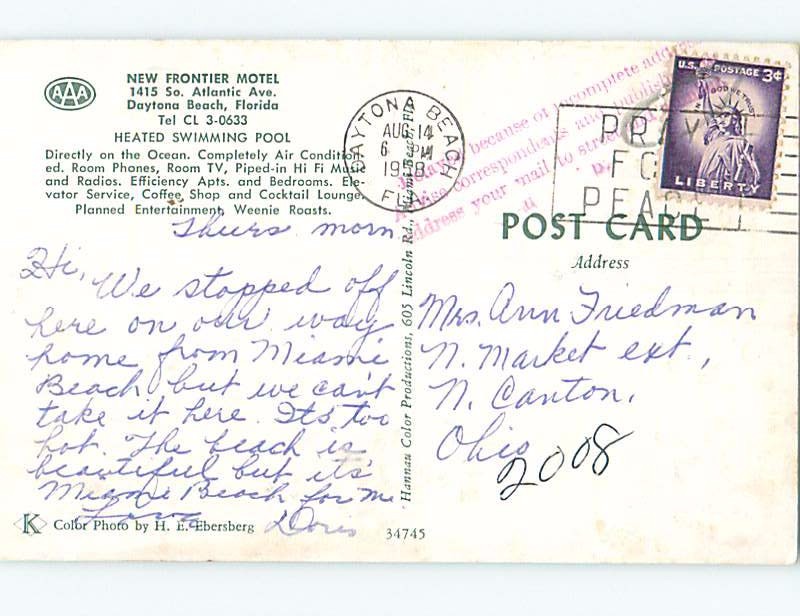 AAA
NEW FRONTIER MOTEL
1415 So. Atlantic Ave.
Daytona Beach, Florida
Tel CL 3-0633
HEATED SWIMMING POOL
Directly on the Ocean. Completely Air Condition-
ed. Room Phones, Room TV, Piped-in Hi Fi Music
and Radios. Efficiency Apts. and Bedrooms. Ele-
vator Service, Coffee Shop and Cocktail Lounge.
Planned Entertainment, Weenie Roasts.
Thurs. morn
Hi,
We stopped off
here on our way
home from Miami
Beach but we can't
take it here. It's too
hot. The beach is
beautiful but it's
Miami Beach for me
Love
Doris
K Color Photo by H. E. Ebersberg
34745
Hannau Color Productions, 605 Lincoln Rd., Miami Beach, Fla.
DAYTONA BEACH
AUG 14
6 PM
FLA
because of incomplete address
correspondents and publishers
address your mail to street
PRAY
FOR
PEACE
U.S. POSTAGE 3¢
IN GOD WE TRUST
LIBERTY
POST CARD
Address
Mrs. Ann Friedman
N. Market ext.,
N. Canton,
Ohio
2008